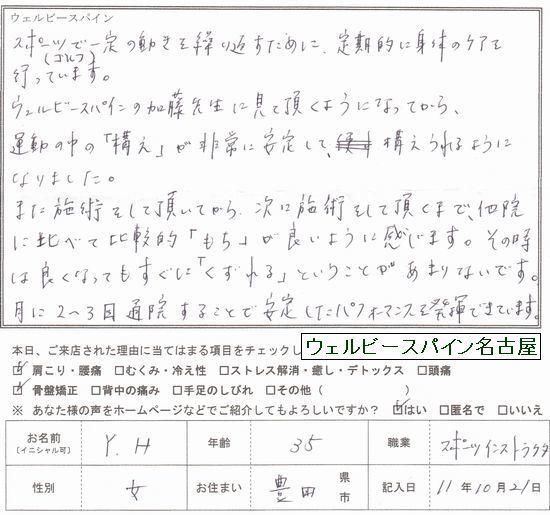 ウェルビースパイン
スポーツで一定の動きを繰り返すために、定期的に身体のケアを
(ゴルフ)
行っています。
ウェルビースパインの加藤先生に見て頂くようになってから、
運動の中の「構え」が非常に安定して、構えられるように
なりました。
また施術をして頂いてから、次に施術をして頂くまで、他院
に比べて比較的「もち」が良いように感じます。その時
は良くなってもすぐに「くずれる」ということがあまりないです。
月に2〜3回通院することで安定したパフォーマンスを発揮できています。
本日、ご来店された理由に当てはまる項目をチェックし
ウェルビースパイン名古屋
☑肩こり・腰痛 □むくみ・冷え性 □ストレス解消・癒し・デトックス □頭痛
☑骨盤矯正 □背中の痛み □手足のしびれ □その他( )
※ あなた様の声をホームページなどでご紹介してもよろしいですか? ☑はい □匿名で □いいえ
お名前 [イニシャル可] Y.H 年齢 35 職業 スポーツインストラクタ
性別 女 お住まい 豊田 県 市 記入日 11年10月21日